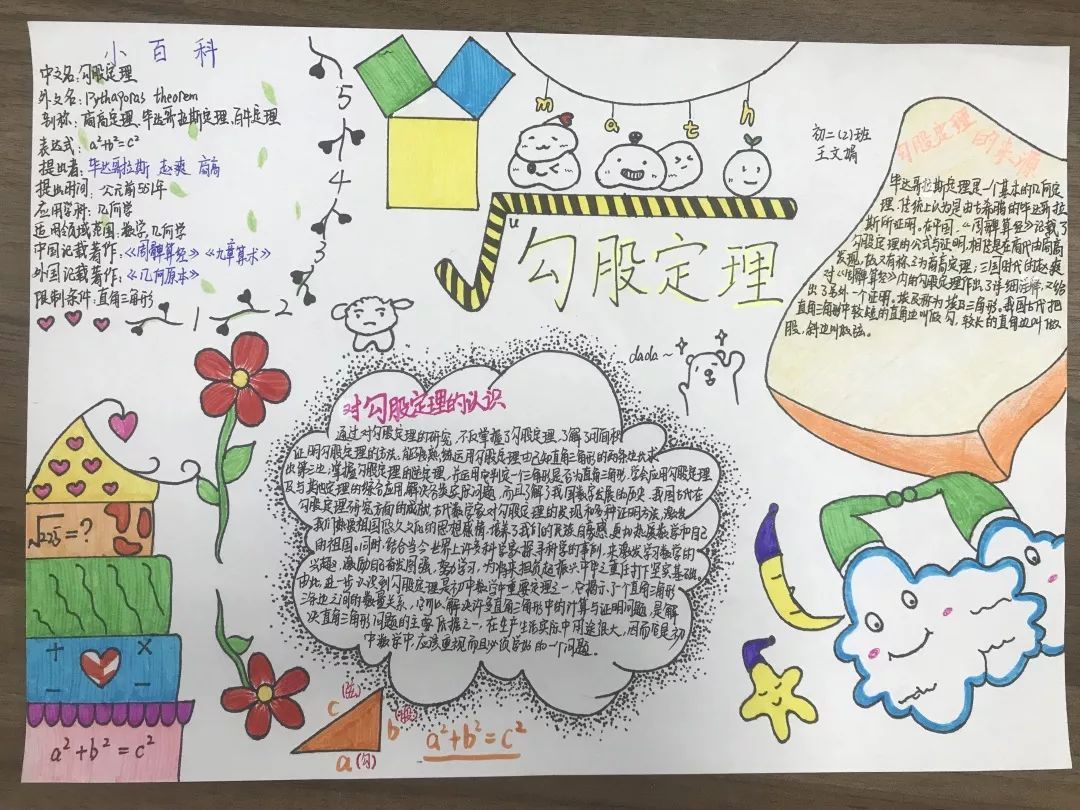 小百科
中文名:勾股定理
外文名:Pythaporas theorem
别称:商高定理、毕达哥拉斯定理、百牛定理
表达式:a²+b²=c²
提出者:毕达哥拉斯 赵爽 商高
提出时间:公元前551年
应用学科:几何学
运用领域范围:数学,几何学
中国记载著作:《周髀算经》《九章算术》
外国记载著作:《几何原本》
限制条件:直角三角形
5
4
3
2
1
math
u
勾股定理
初二(2)班
王文娟
勾股定理的来源
毕达哥拉斯定理是一个基本的几何定
理,传统上认为是由古希腊的毕达哥拉
斯所证明。在中国,《周髀算经》记载了
勾股定理的公式与证明,相传是在商代由商高
发现,故又有称之为商高定理;三国时代的赵爽
对《周髀算经》内的勾股定理作出了详细注释,又给
出了另外一个证明。埃及称为埃及三角形。我国古代把
直角三角形中较短的直角边叫做勾,较长的直角边叫做
股,斜边叫做弦。
dada~
对勾股定理的认识
通过对勾股定理的研究,不仅掌握了勾股定理,了解了用面积
证明勾股定理的方法,能够熟练运用勾股定理由已知直角三角形的两条边长求
出第三边,掌握勾股定理的逆定理,并运用它判定一个三角形是否为直角三角形,学会应用勾股定理
及与其他定理的综合应用,解决分类实际问题,而且了解了我国数学发展的历史,我国古代在
勾股定理研究方面的成就,古代数学家对勾股定理的发现和各种证明方法,激发
我们热爱祖国悠久文化的思想感情,培养了我们的民族自豪感,更加热爱数学和自己
的祖国。同时,结合当今世界上许多科学家探寻科学的事例,来激发学习数学的
兴趣,激励自己发图强,努力学习,为将来担负起振兴中华之重任打下坚实基础。
由此,进一步认识到勾股定理是初中数学中重要定理之一,它揭示了个直角三角形
三条边之间的数量关系,它可以解决许多直角三角形中的计算与证明问题,是解
决直角三角形问题的主要依据之一,在生产生活实际中用途很大,因而它是初
中数学中,应该重视而且必须学好的一个问题。
√225=?
+ ×
- -
a²+b²=c²
c(弦)
b(股)
a(勾)
a²+b²=c²